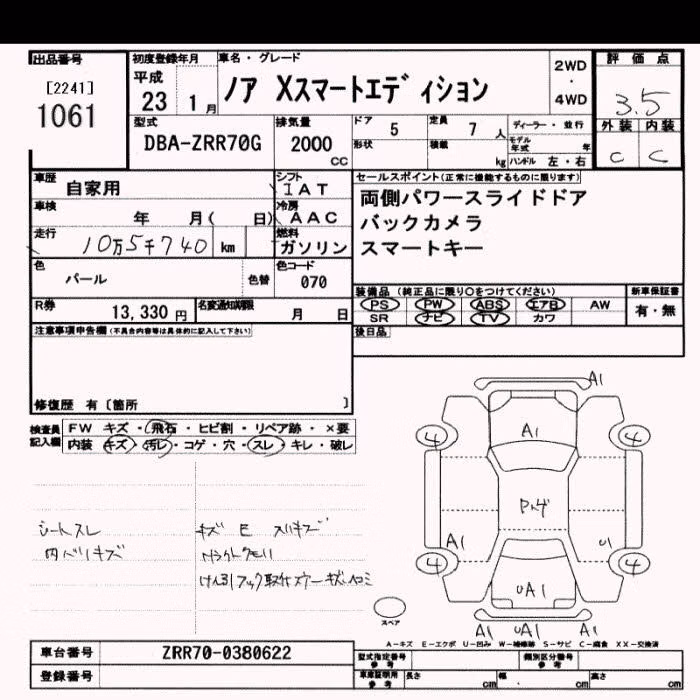 出品番号
[2241]
1061
初度登録年月
平成
23 1 月
車名・グレード
ノア Xスマートエディション
2WD
・
4WD
評価点
3.5
外装 内装
C C
型式
DBA-ZRR70G
排気量
2000
CC
ドア
5
形状
定員
7 人
積載
kg
ディーラー・並行
モデル年式 年
ハンドル 左・右
車歴
自家用
シフト
IAT
車検
年 月( 日)
冷房
AAC
走行
10万5千740 km
燃料
ガソリン
色
パール
色替
色コード
070
R券
13,330 円
名変通知期限
月 日
セールスポイント(正常に機能するものに限ります)
両側パワースライドドア
バックカメラ
スマートキー
装備品 (純正品に限り○をつけてください)
PS PW ABS エアB AW
SR ナビ TV カワ
新車保証書
有・無
後日品
注意事項申告欄(不具合内容等は具体的に記入して下さい)
修復歴 有〔箇所 〕
検査員
記入欄
FW キズ・飛石・ヒビ割・リペア跡・×要
内装 キズ・汚レ・コゲ・穴・スレ・キレ・破レ
シートスレ
内ハリキズ
キズ E スリキズ
A1
4 4
A1
A1
U1
4 4
UA1
A1 UA1 A1
スペア
A-キズ E-エクボ U-凹み W-補修跡 S-サビ C-腐食 XX-交換済
車台番号
ZRR70-0380622
登録番号
型式指定番号
参考
類別区分番号
参考
車庫証明用
参考
長さ cm
幅 cm
高さ cm